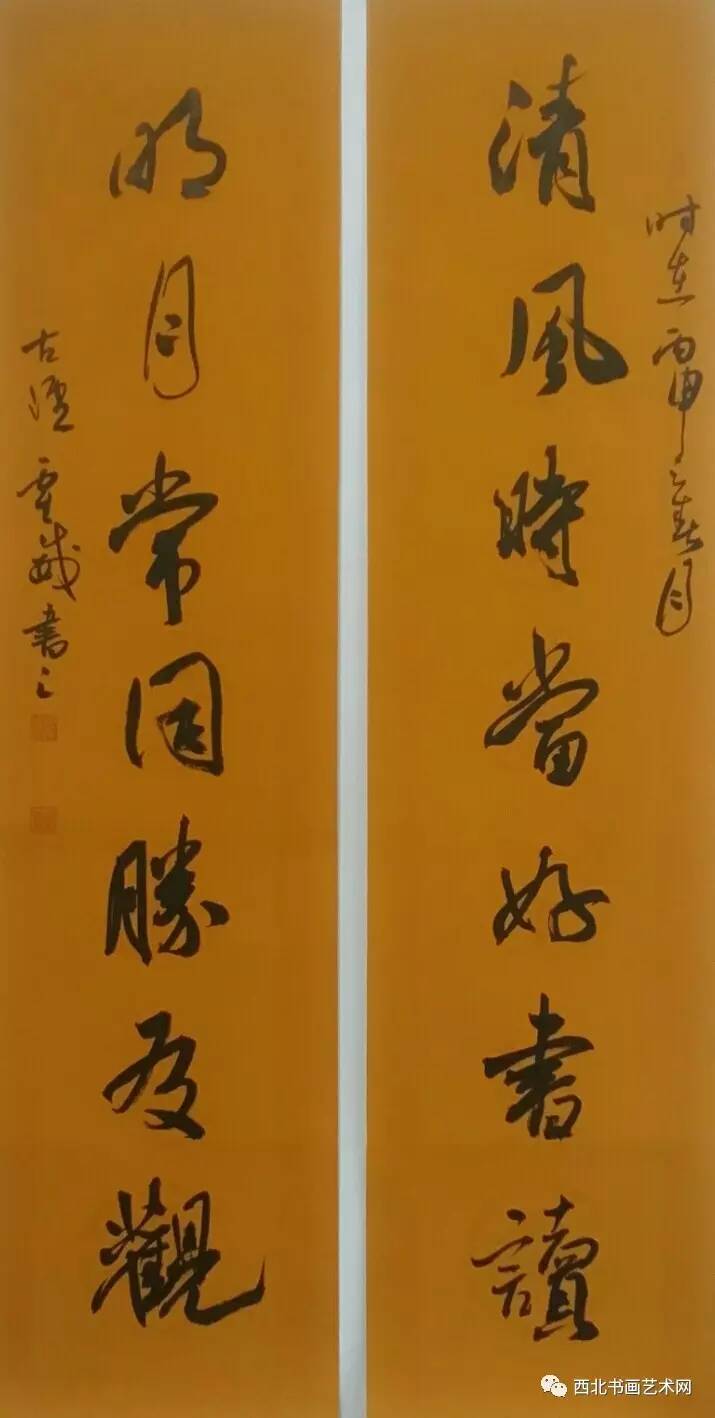 时在丙申之春月
清風時當好書讀
明月常同勝友觀
古書之
西北书画艺术网